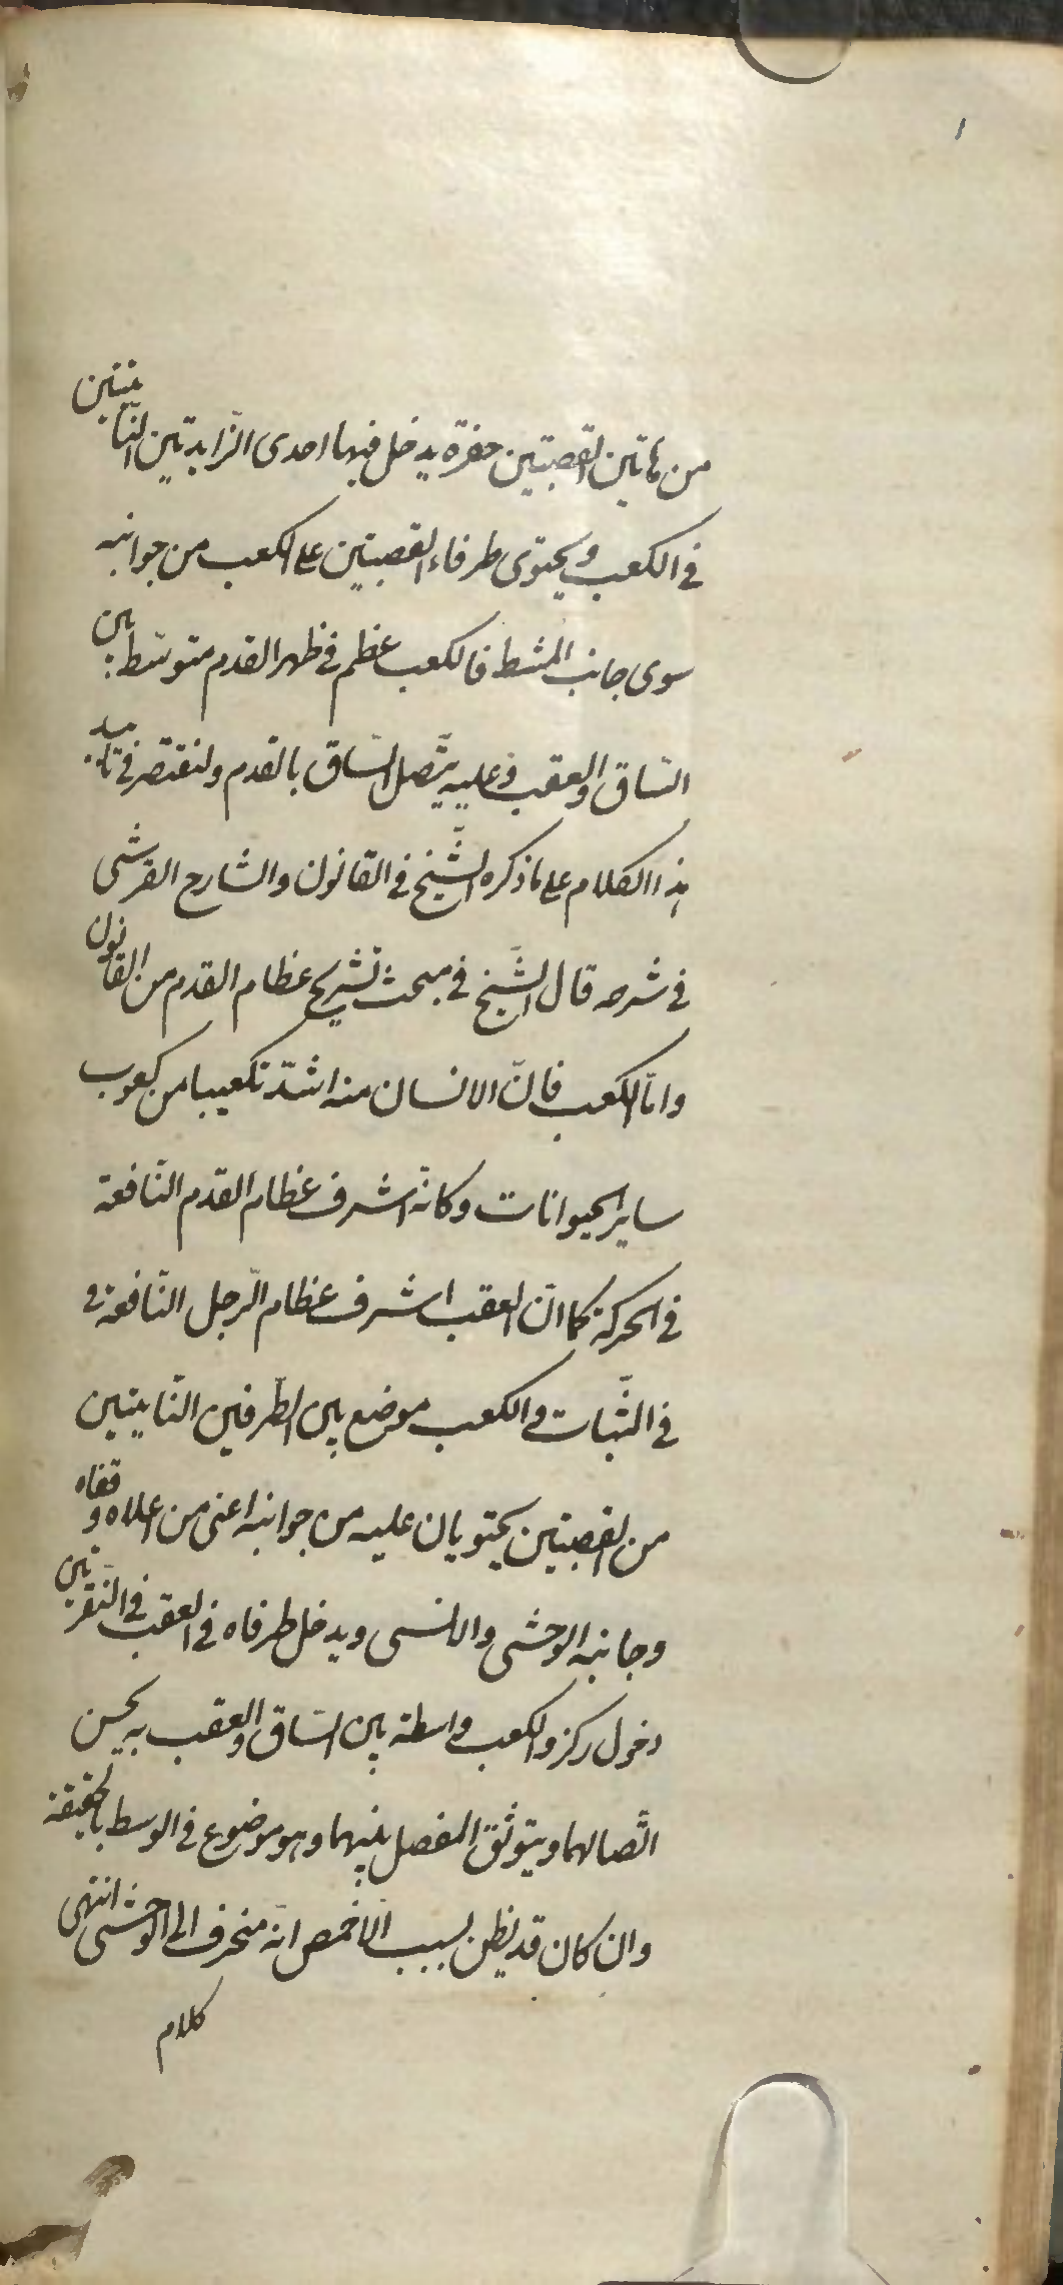 ١
من هاتين القصبتين حفرة يدخل فيها احدى الزايدتين الناتيتين
فى الكعب ويحتوى طرفاء القصبتين على الكعب من جوانبه
سوى جانب المشط فالكعب عظم فى ظهر القدم متوسّط بين
السّاق والعقب وعليه يتّصل السّاق بالقدم ولنقتصر فى تاييد
هذا الكلام على ما ذكره الشّيخ فى القانون والشارح القرشى
فى شرحه قال الشّيخ فى مبحث تشريح عظام القدم من القانون
وامّا الكعب فانّ الانسان منه اشدّ تكعيبا من كعوب
ساير الحيوانات وكانّه اشرف عظام القدم النّافعة
فى الحركة كما انّ العقب اشرف عظام الرّجل النّافعة فى
فى الثّبات والكعب موضع بين الطّرفين النّاتيتين
من القصبتين يحتويان عليه من جوانبه اعنى من اعلاه وقفاه
وجانبه الوحشى والانسى ويدخل طرفاه فى العقب فى النّقرتين
دخول ركز والكعب واسطة بين السّاق والعقب به يحسن
اتّصالهما ويتوثّق المفصل بينهما وهو موضوع فى الوسط بالحقيقة
وان كان قد يظن بسبب الاخمص انّه منحرف الى الوحشى انتهى
كلام